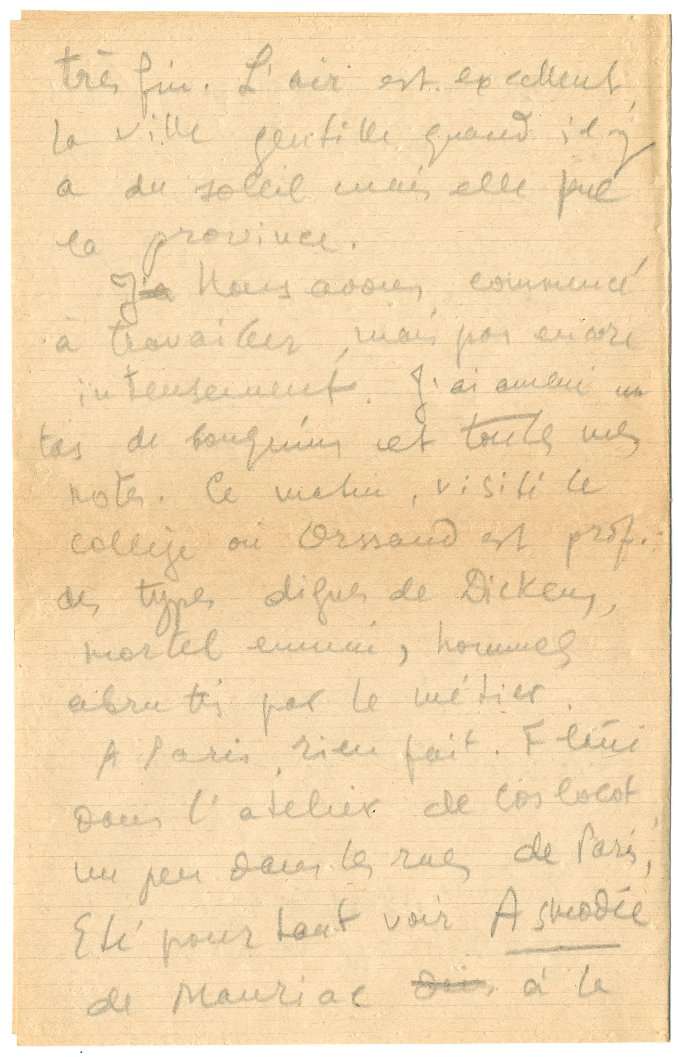 très fin. L'air est excellent,
la ville gentille quand il y
a du soleil mais elle pue
la province.
Nous avons commencé
à travailler, mais pas encore
intensement. J'ai amené un
tas de bouquins et toutes mes
notes. Ce matin, visité le
collège où Orssaud est prof.:
des types dignes de Dickens,
mortel ennui, hommes
abrutis par le métier.
A Paris, rien fait. Flâné
dans l'atelier de
un peu dans les rues de Paris,
Eté pourtant voir Asmodée
de Mauriac à la